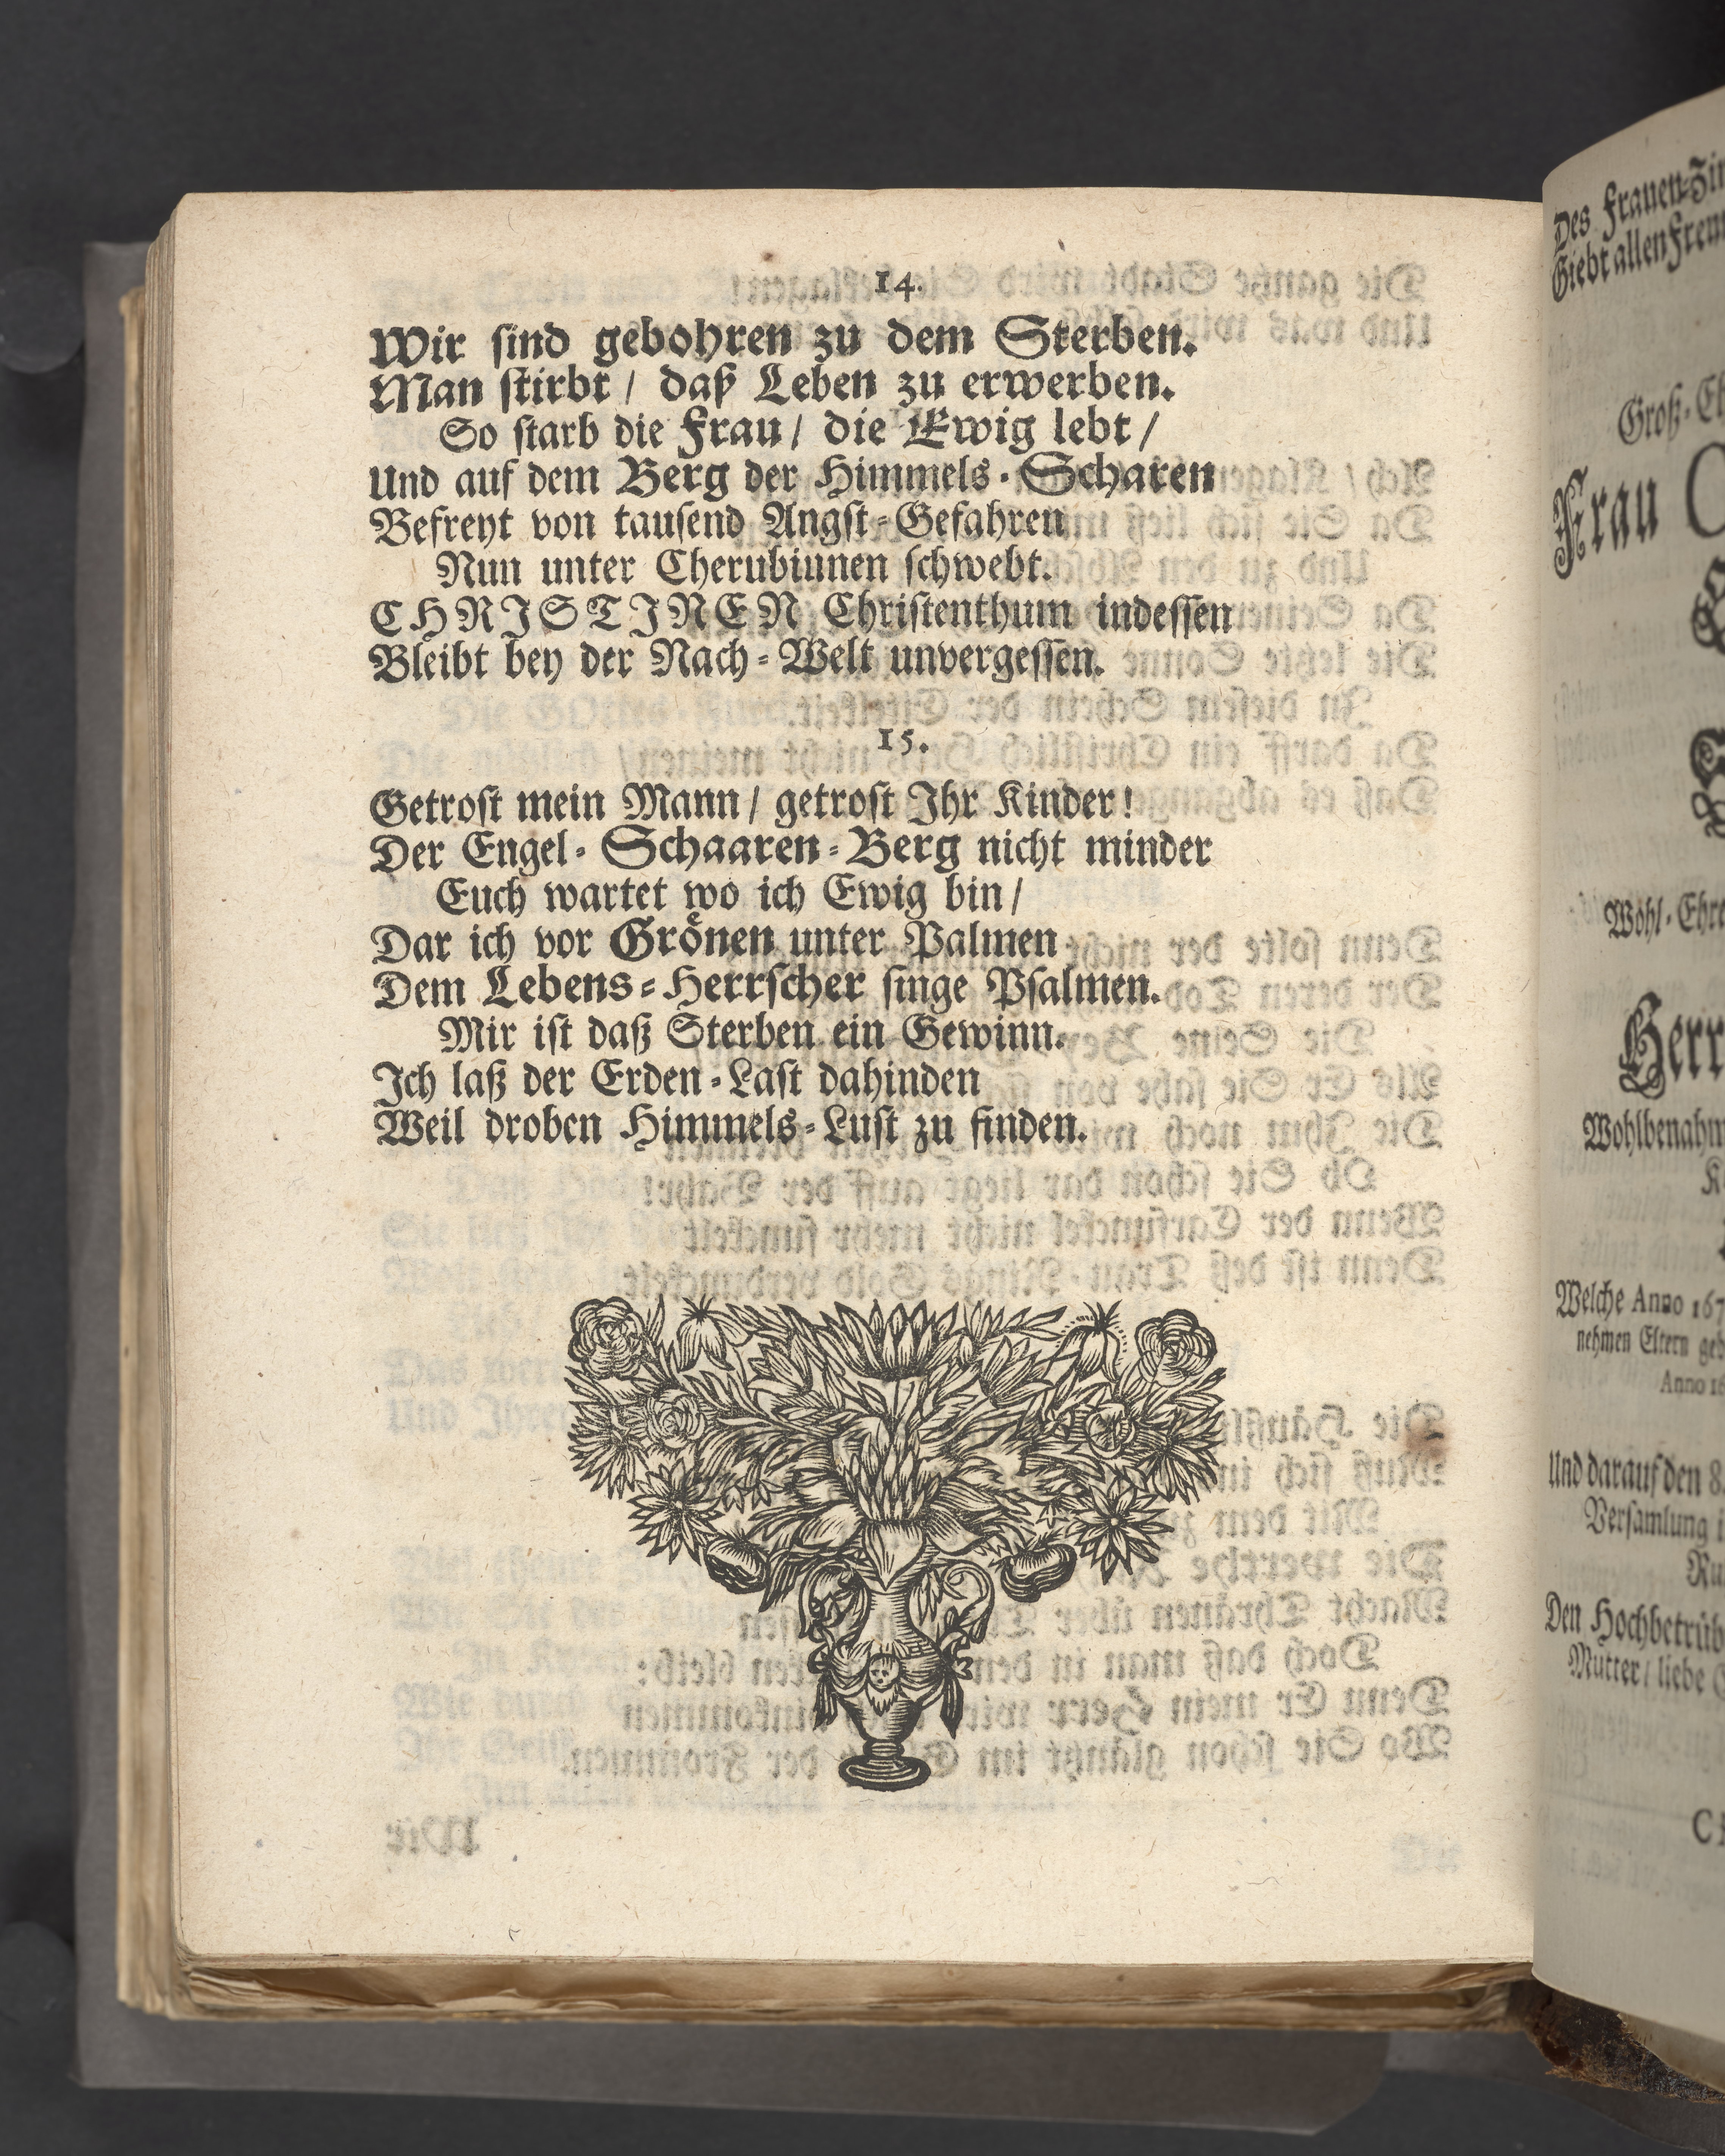 14.
Wir sind gebohren zu dem Sterben.
Man stirbt / daß Leben zu erwerben.
So starb die Frau / die Ewig lebt /
Und auf dem Berg der Himmels-Scharen
Befreyt von tausend Angst-Gefahren
Nun unter Cherubinnen schwebt.
CHRISTINEN Christenthum indessen
Bleibt bey der Nach-Welt unvergessen.
15.
Getrost mein Mann / getrost Ihr Kinder!
Der Engel-Schaaren-Berg nicht minder
Euch wartet wo ich Ewig bin /
Dar ich vor Grönen unter Palmen
Dem Lebens-Herrscher singe Psalmen.
Mir ist daß Sterben ein Gewinn.
Ich laß der Erden-Last dahinden
Weil droben Himmels-Lust zu finden.
Des Frauen-
Giebt allen
Groß-
Frau
Wohl-
Herr
Wohlbenahm
Welche Anno 167
nehmen Eltern geb
Anno 16
Und darauf den 8.
Versamlung
Den Hochbetrüb
Mutter / liebe